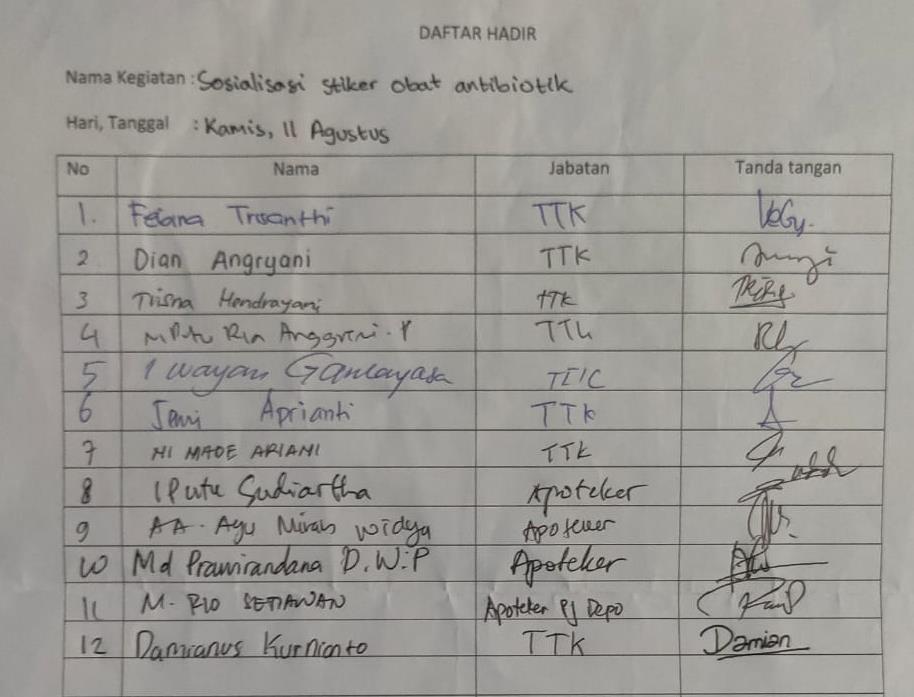 DAFTAR HADIR
Nama Kegiatan : Sosialisasi stiker obat antibiotik
Hari, Tanggal : Kamis, 11 Agustus
No Nama Jabatan Tanda tangan
1. Trisanthi TTK
2 Dian Angryani TTK
3 Trisna Hendrayani TTK
4 Ria Anggreni. P TTK
5 I Wayan TTK
6 Aprianti TTK
7 NI MADE ARIANI TTK
8 I Putu Sudiartha Apoteker
9 AA. Ayu Mirah Widya Apoteker
10 Md Pramirandana D.W.P Apoteker
11 M. RIO SETIAWAN Apoteker Pj Depo
12 Damianus Kurnianto TTK Damian